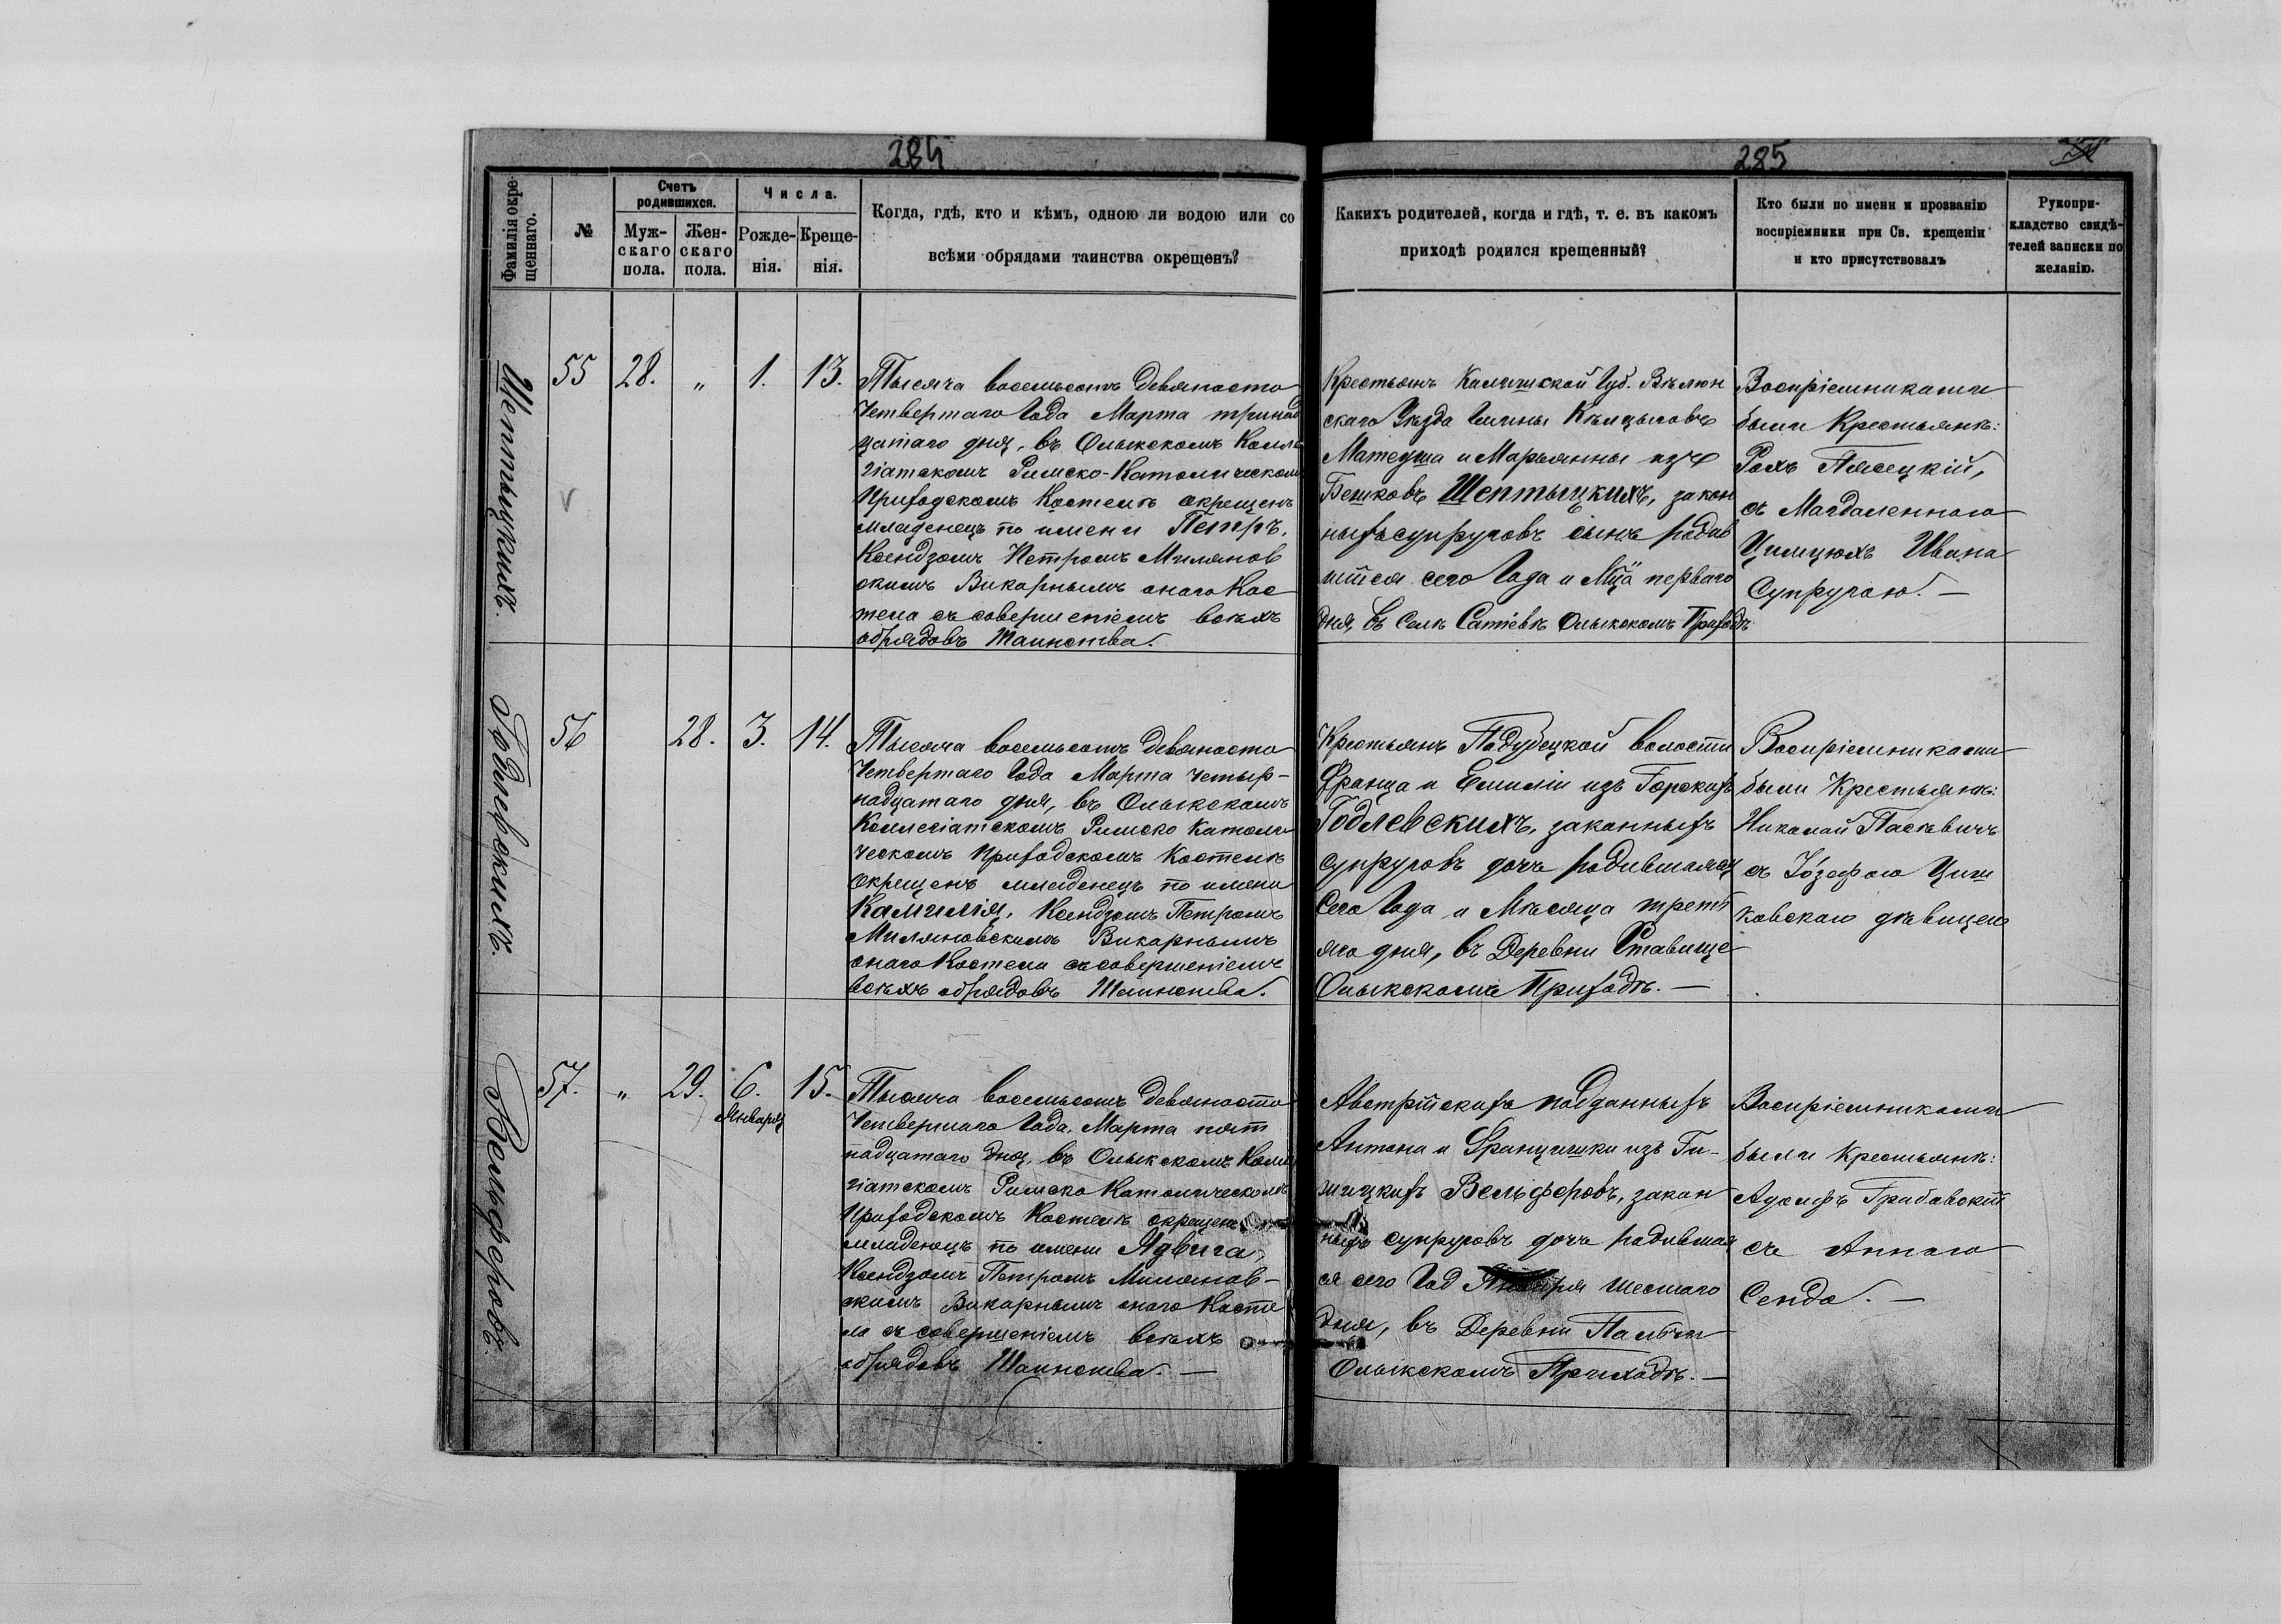 284
285
Фамилія окрещеннаго.
№
Счетъ родившихся.
Мужскаго пола.
Женскаго пола.
Числа.
Рожденія.
Крещенія.
Когда, гдѣ, кто и кѣмъ, одною ли водою или со
всѣми обрядами таинства окрещенъ?
Какихъ родителей, когда и гдѣ, т. е. въ какомъ
приходѣ родился крещенный?
Кто были по имени и прозванію
воспріемники при Св. крещеніи
и кто присутствовалъ
Рукопри-
кладство свидѣ-
телей записки по
желанію.
Шептыцкихъ.
55
28.
„
1.
13.
Тысяча восемьсотъ девяносто
Четвертаго Года Марта тринад
цатаго дня, въ Олыкскомъ Колле
гіатскомъ Римско-Католическомъ
Приходскомъ Костелѣ окрещенъ
младенецъ по имени Петръ,
Ксендзомъ Петромъ Миляновскимъ
Викарнымъ онаго Кос
тела съ совершеніемъ всѣхъ
обрядовъ Таинства.
Крестьянъ Калишской Губ. Вѣлюн
скаго Уѣзда Гмины
Матеуша и Марьянны изъ
Бешковъ Шептыцкихъ, закон
ныхъ супруговъ сынъ родив
шійся сего Года и Мца перваго
дня, въ Селѣ Сатіевѣ Олыкскомъ Приходѣ
Воспріемниками
были Крестьяне:
Рохъ Плясецкій,
съ Магдаленною
Цимцюхъ Ивана
Супругою. —
Годлевскихъ.
56
28.
3.
14.
Тысяча восемьсотъ девяносто
Четвертаго Года Марта четыр-
надцатаго дня, въ Олыкскомъ
Коллегіатскомъ Римско Католи
ческомъ Приходскомъ Костелѣ
окрещенъ младенецъ по имени
Камилія, Ксендзомъ Петромъ
Миляновскимъ Викарнымъ
онаго Костела съ совершеніемъ
всѣхъ обрядовъ Таинства.
Крестьянъ Подубецкой волости
Франца и Емиліи изъ Горскихъ
Годлевскихъ, законныхъ
супруговъ дочь родившаяся
Сего Года и Мѣсяца треть
яго дня, въ Деревни Ставище
Олыкскомъ Приходѣ. —
Воспріемниками
были Крестьяне:
Николай Паскевичъ
съ Іозефою Циш
ковскою дѣвицею
Вельферовъ.
57.
„
29.
6.
Января
15.
Тысяча восемьсотъ девяносто
Четвертаго Года, Марта пят
надцатаго дня, въ Олыкскомъ Колле
гіатскомъ Римско Католическомъ
Приходскомъ Костелѣ окрещенъ
младенецъ по имени Ядвига,
Ксендзомъ Петромъ Милянов-
скимъ Викарнымъ онаго Косте
ла съ совершеніемъ всѣхъ
обрядовъ Таинства. —
Австрійскихъ подданныхъ
Антона и Францишки изъ Ги-
жицкихъ Вельферовъ, закон
ныхъ супруговъ дочь родившая
ся сего Год Января шестаго
дня, въ Деревни Пальчи
Олыкскомъ Приходѣ. —
Воспріемниками
были Крестьяне:
Адольфъ Грабовскій
съ Анною
Сендо. —